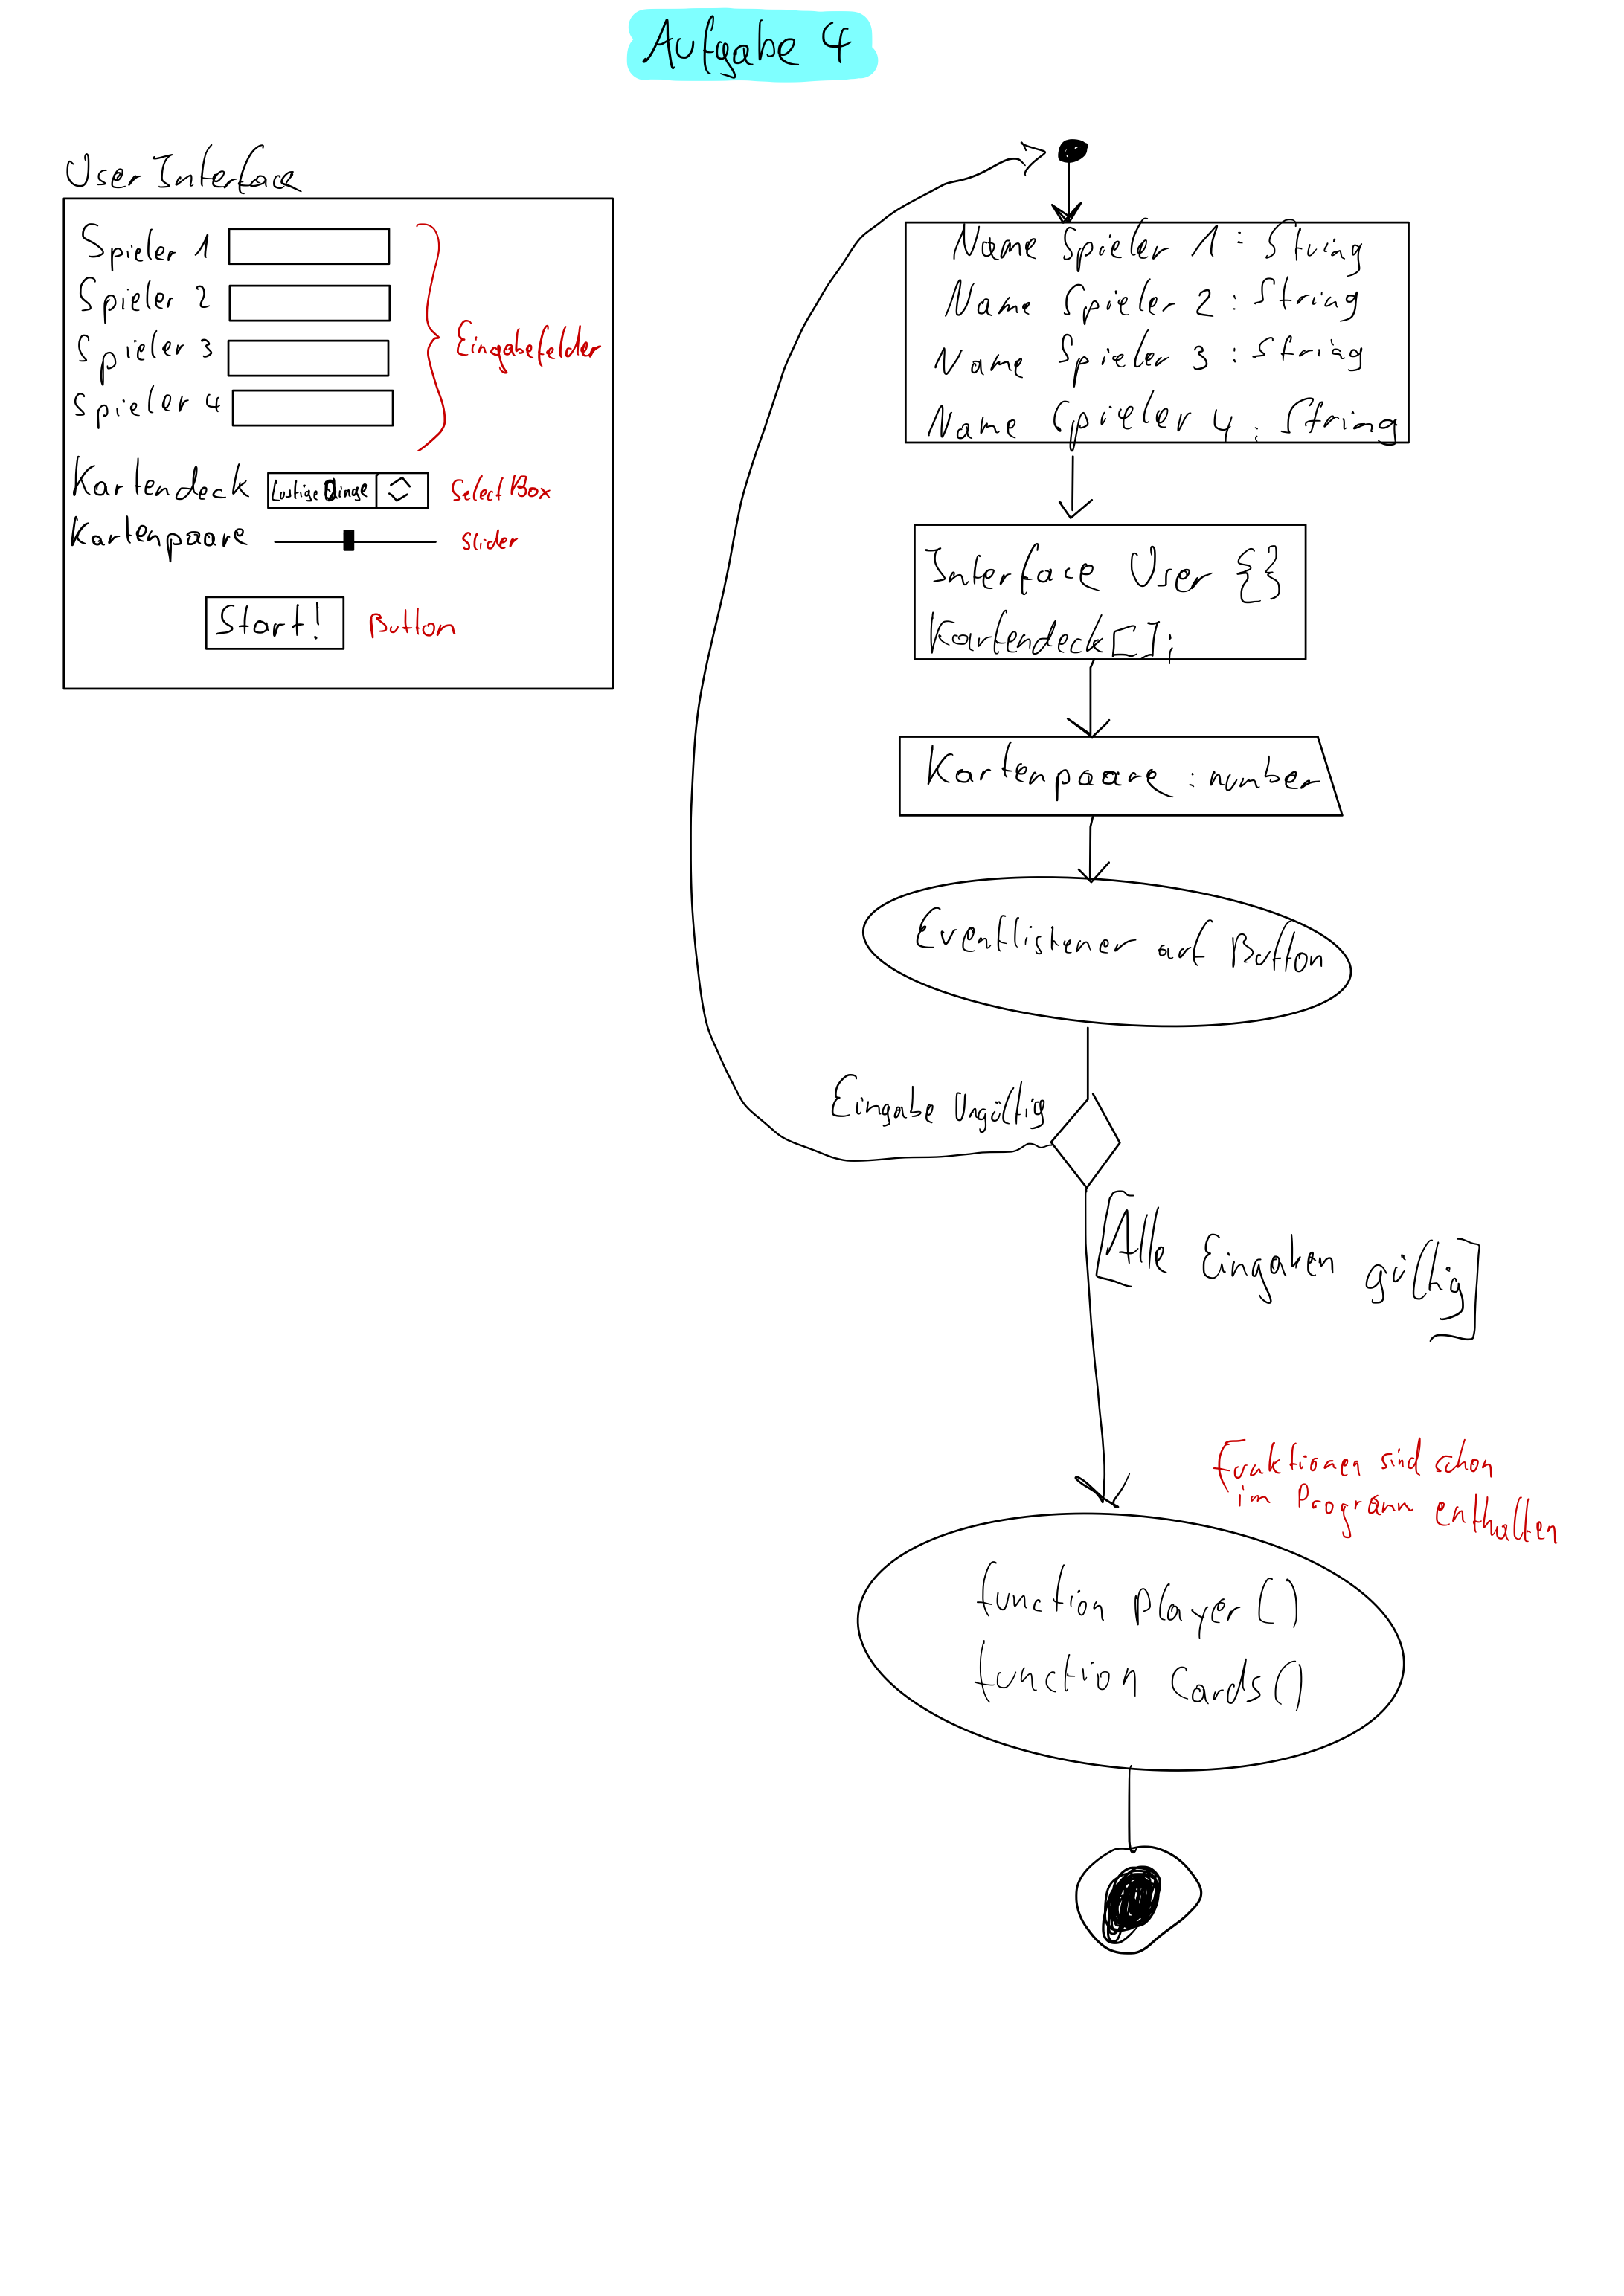 Aufgabe 4
User Interface
Spieler 1
Spieler 2
Spieler 3
Spieler 4
Eingabefelder
Kartendeck Lustige Dinge Select Box
Kartenpaare Slider
Start! Button
Name Spieler 1 : String
Name Spieler 2 : String
Name Spieler 3 : String
Name Spieler 4 : String
Interface User {}
Kartendeck[];
Kartenpaare : number
Eventlistener auf Button
Eingabe Ungültig
[Alle Eingaben gültig]
Funktionen sind schon
im Programm enthalten
function Player()
function Cards()